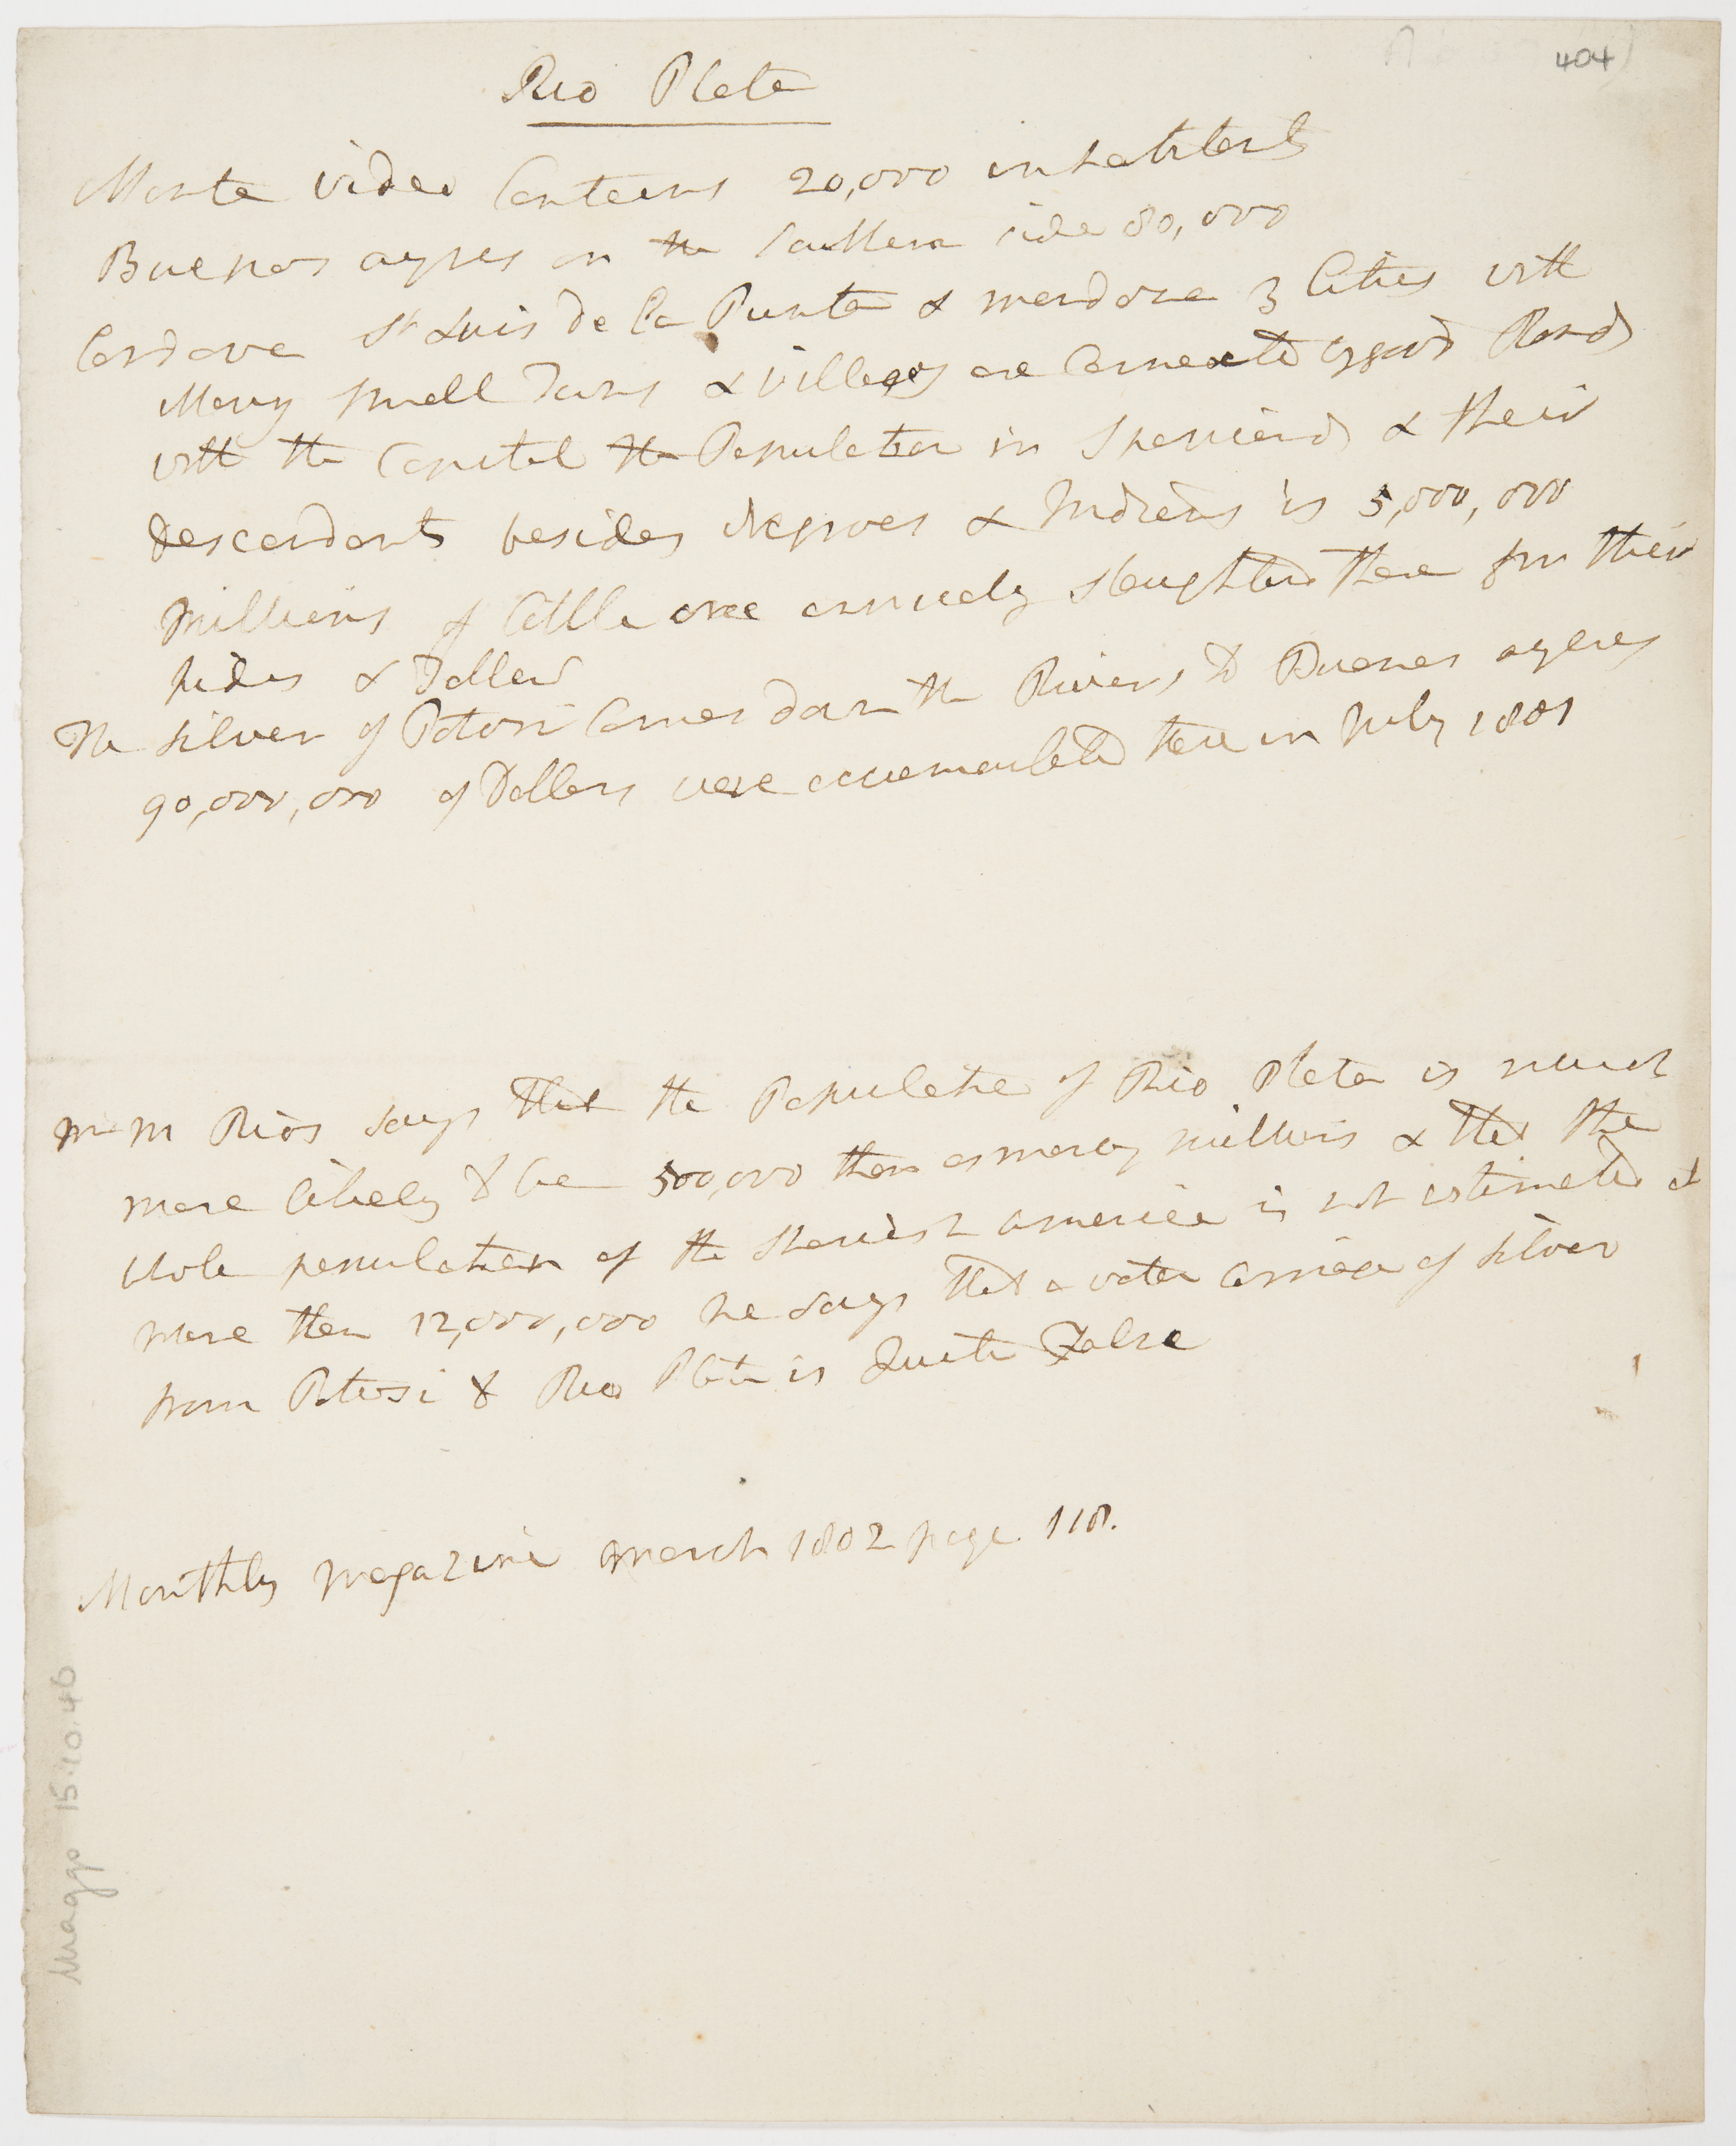 404
Rio Plata
Monte video Contains 20,000 inhabitants
Buenos ayres on the Southern side 80,000
Cordova St Luis de la Punta & mendoza 3 Cities with
Many small Towns & villages are Connected by good Roads
with the Capital the Population in Spaniards & their
descendants besides Negroes & Indians is 5,000,000
Millions of Cattle are annualy slaughterd there for their
hides & Tallow
The silver of Potosi Comes down the Rivers to Buenos ayeres
90,000,000 of Dollars were accumulated there in July 1801
Mr M Rios says that the Population of Rio Plata is much
more likely to be 500,000 than as many millions & that the
whole population of the Spanish america is not estimated at
more than 12,000,000 he says that a water Carriage of silver
from Potosi to Rio Plata is Quite False
Monthly Magazine March 1802 page 118.
Maggs 15.10.46